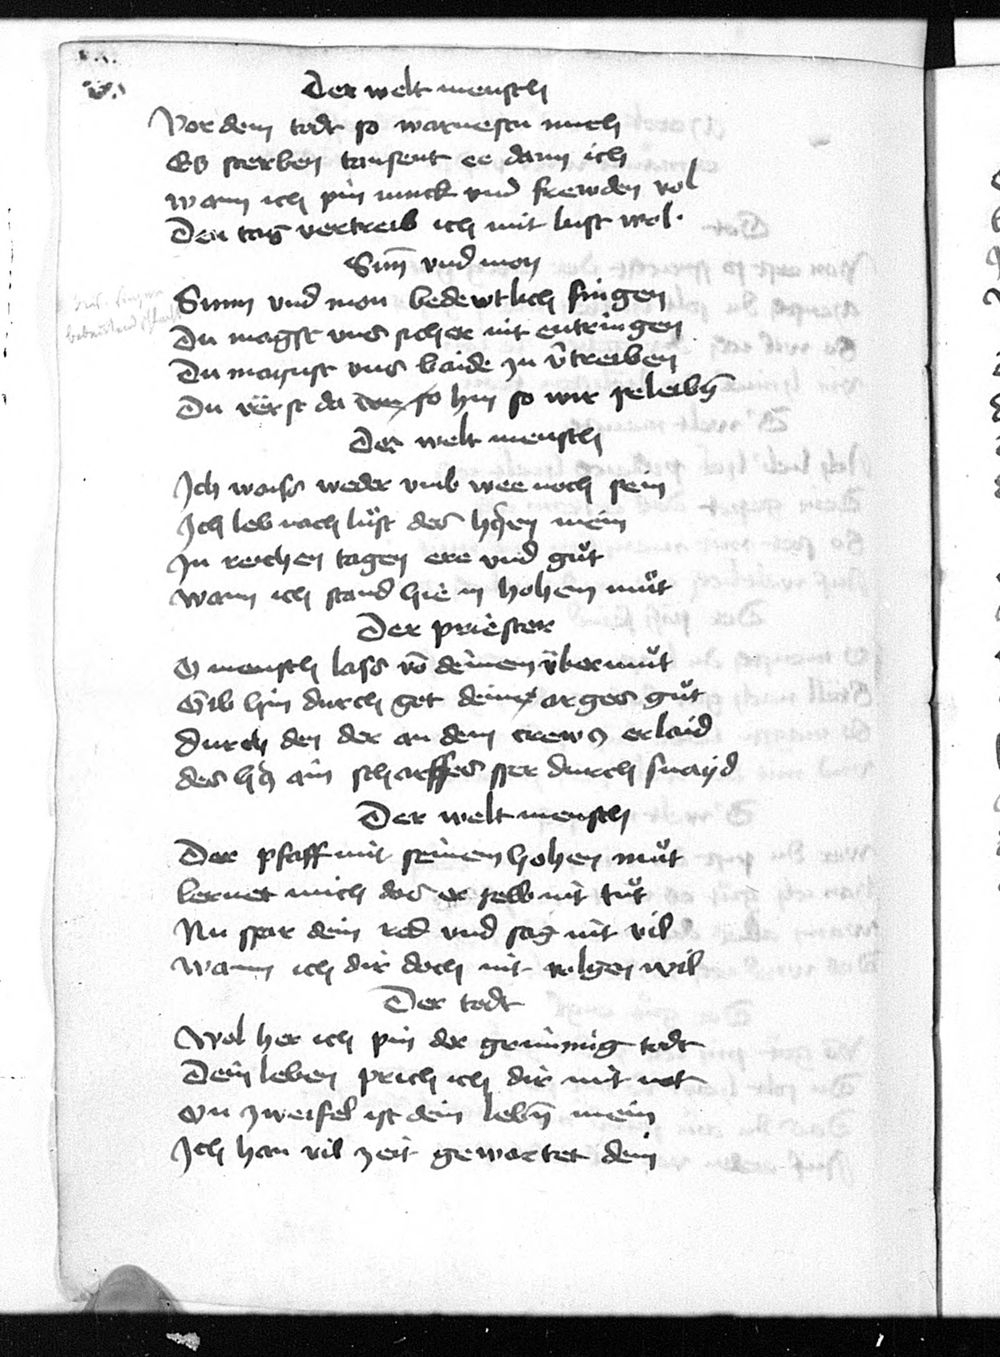 Der welt mensch
Vor dem todt so warnestu mich
Es sterben tausent ee dann ich
wann ich pin iunck vnd frewden vol
Den tag vertreib ich mit lust wol
Sun̄ vnd mon
Sunn vnd mon bedewtlich singen
Du magst vns sicher nit entringen
Du mainst vns baide zu v̄treiben
Du verst da hin so wir peleibn̄
Der welt mensch
Ich waiss weder vmb wee noch pein
Ich leb nach lust des hʒen mein
In reichen tagen ere vnd gůt
wann ich stand hie in hohem můt
Der priester
O mensch lass vō deinem übermůt
Gib hin durch got dein arges gůt
Durch den der an dem crewʒ erlaid
des hʒ ain scharffes sper durch snaijd
Der welt mensch
Der pfaff mit seinem hohen můt
lernet mich das er selb nit tůt
Nu spar dein red vnd sag nit vil
wann ich dir doch nit volgen wil
Der todt
Wol her ich pin der grimmig todt
Dein leben prich ich dir mit not
On zweifel ist dein lebn̄ mein
Ich han vil zeit gewartet dein